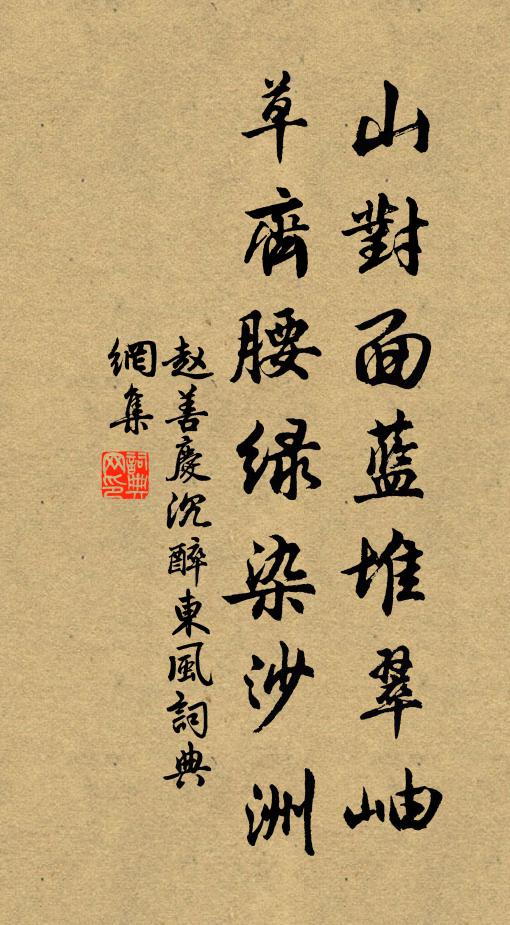 山對面藍堆翠岫
草齊腰绿染沙洲
赵善慶沉醉東風詞典
網集
詞典
网印